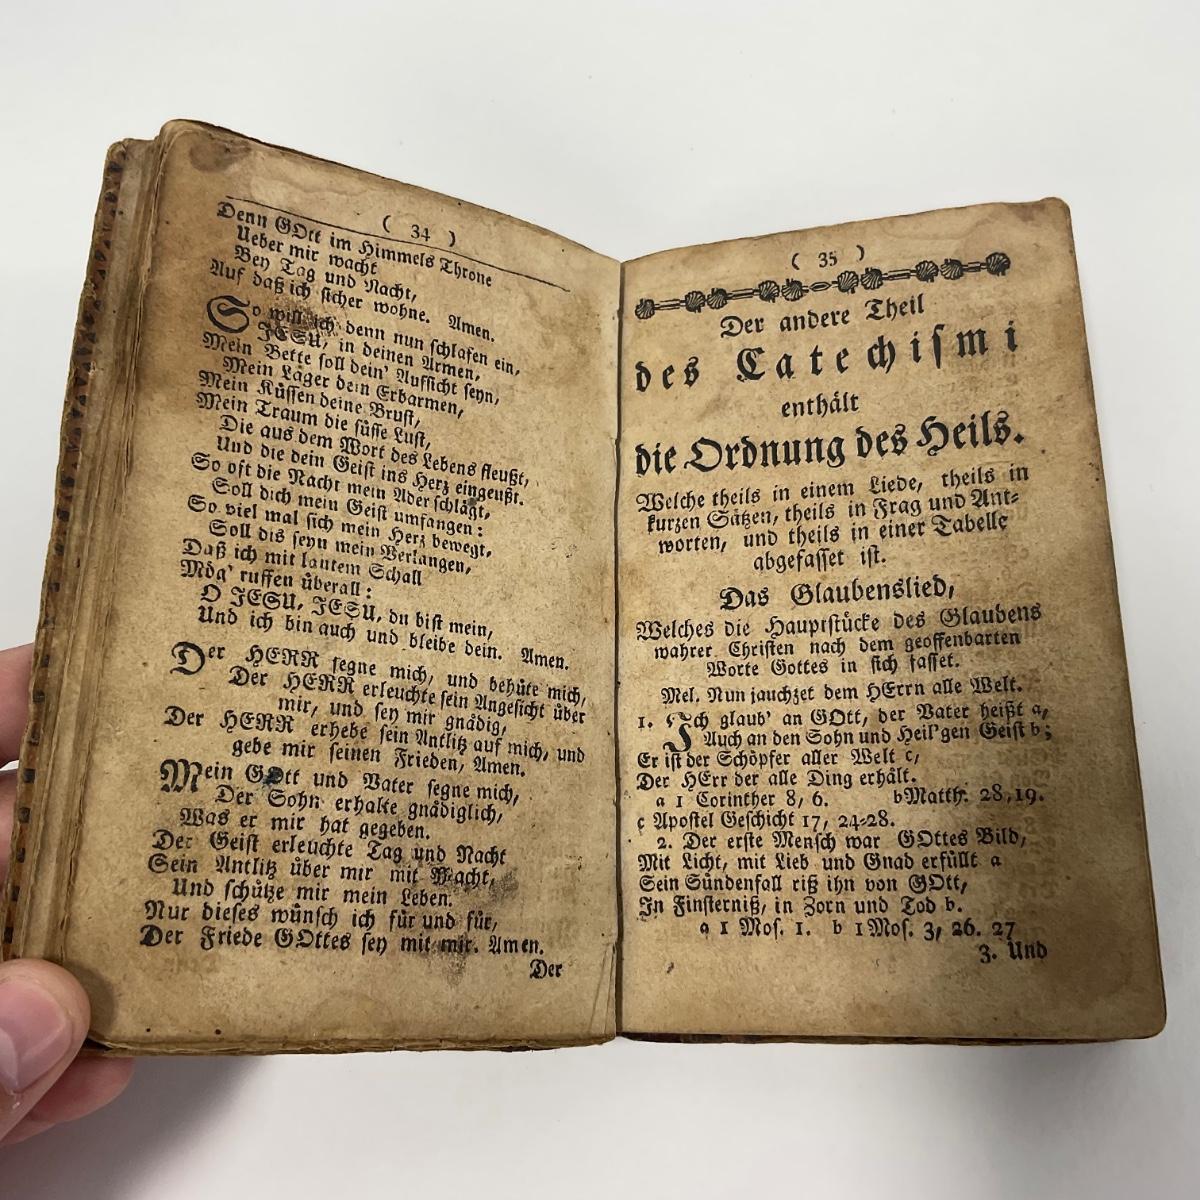 ( 34 )
Denn GOtt im Himmels Throne
Ueber mir wacht
Bey Tag und Nacht,
Auf daß ich sicher wohne. Amen.
So will ich denn nun schlafen ein,
JESU, in deinen Armen,
Mein Bette soll dein' Aufsicht seyn,
Mein Läger dein Erbarmen,
Mein Küssen deine Brust,
Mein Traum die süsse Lust,
Die aus dem Wort des Lebens fleußt,
Und die dein Geist ins Herz eingeußt.
So oft die Nacht mein Ader schlägt,
Soll dich mein Geist umfangen:
So viel mal sich mein Herz bewegt,
Soll dis seyn mein Verlangen,
Daß ich mit lautem Schall
Mög' ruffen überall:
O JESU, JESU, du bist mein,
Und ich bin auch und bleibe dein. Amen.
Der HERR segne mich, und behüte mich,
Der HERR erleuchte sein Angesicht über
mir, und sey mir gnädig,
Der HERR erhebe sein Antlitz auf mich, und
gebe mir seinen Frieden, Amen.
Mein GOtt und Vater segne mich,
Der Sohn erhalte gnädiglich,
Was er mir hat gegeben.
Der Geist erleuchte Tag und Nacht
Sein Antlitz über mir mit Macht,
Und schütze mir mein Leben.
Nur dieses wünsch ich für und für,
Der Friede GOttes sey mit mir. Amen.
Der
( 35 )
Der andere Theil
des Catechismi
enthält
die Ordnung des Heils.
Welche theils in einem Liede, theils in
kurzen Sätzen, theils in Frag und Ant-
worten, und theils in einer Tabelle
abgefasset ist.
Das Glaubenslied,
Welches die Hauptstücke des Glaubens
wahrer Christen nach dem geoffenbarten
Worte Gottes in sich fasset.
Mel. Nun jauchzet dem HErrn alle Welt.
1. Ich glaub' an GOtt, der Vater heißt a,
Auch an den Sohn und Heil'gen Geist b;
Er ist der Schöpfer aller Welt c,
Der HErr der alle Ding erhält.
a 1 Corinther 8, 6. b Matth. 28, 19.
c Apostel Geschicht 17, 24-28.
2. Der erste Mensch war GOttes Bild,
Mit Licht, mit Lieb und Gnad erfüllt a
Sein Sündenfall riß ihn von GOtt,
In Finsterniß, in Zorn und Tod b.
a 1 Mos. 1. b 1 Mos. 3, 26. 27
3. Und